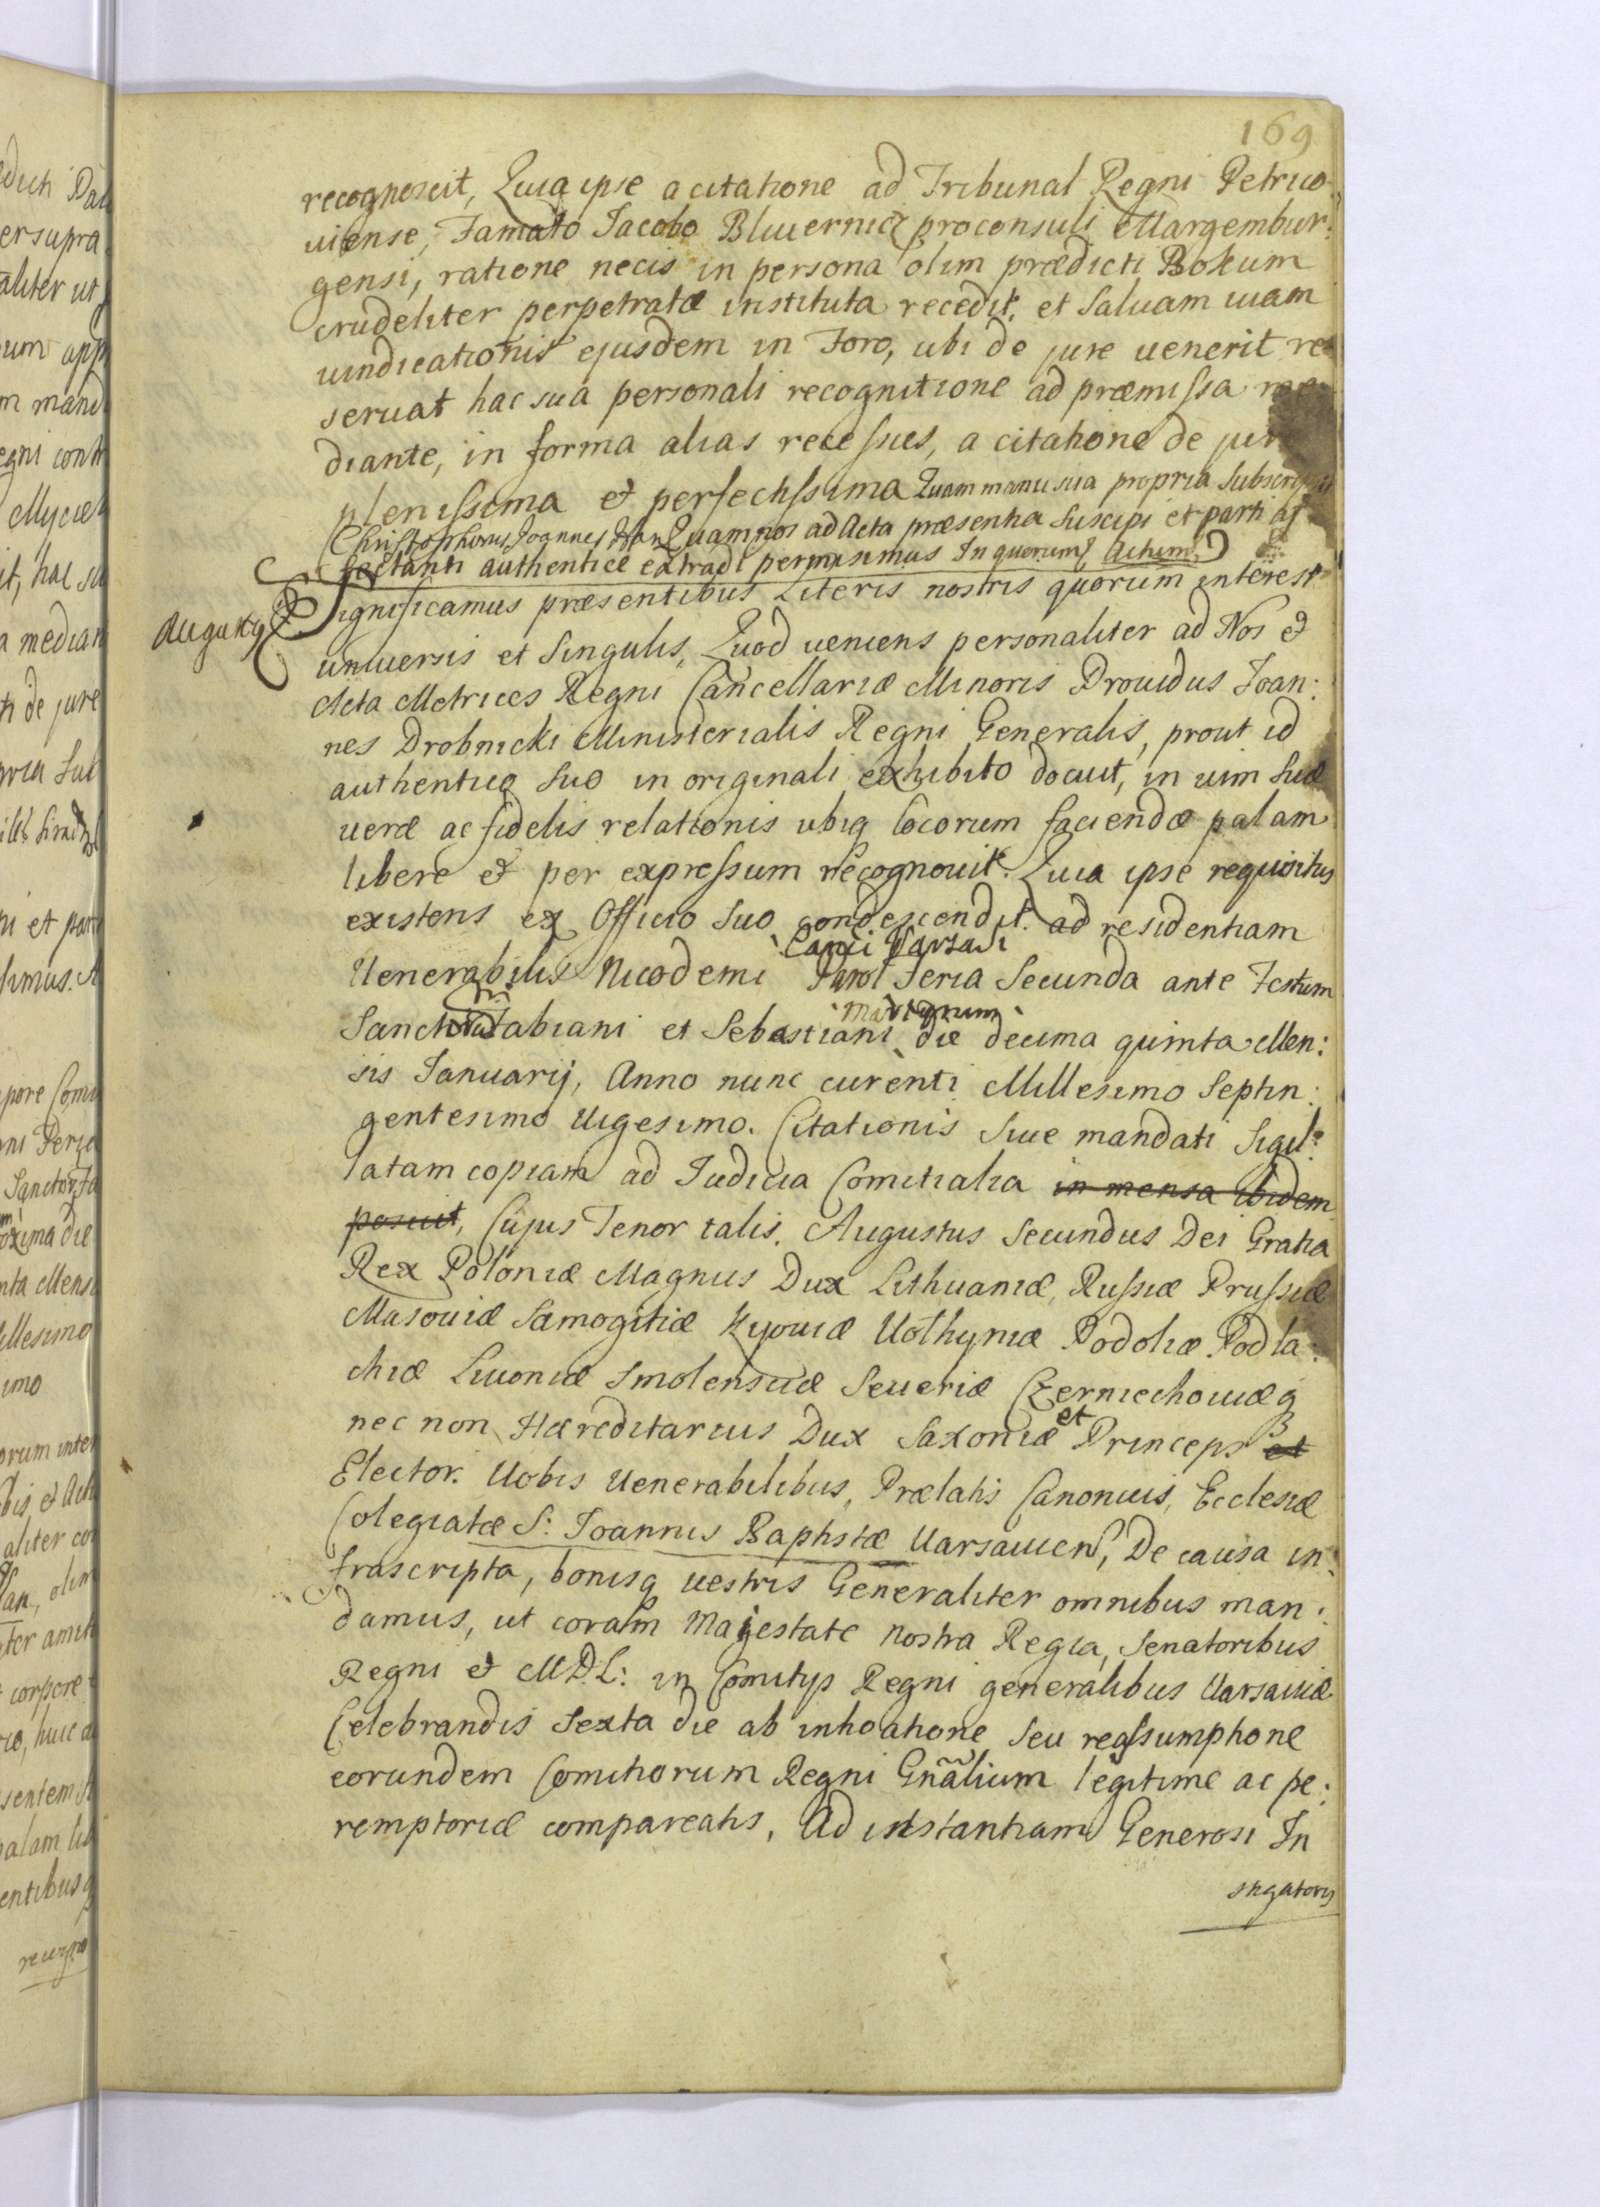 169
recognoscit, Quia ipse a citatione ad Tribunal Regni Petrico
uiense, Famato Jacobo proconsuli Margembur:
gensi, ratione necis in persona olim prædicti Bokum
crudeliter perpetratæ instituta recedit, et Saluam uiam
uindicationis ejusdem in Foro, ubi de jure uenerit re
seruat hac sua personali recognitione ad præmissa me
diante, in forma alias recessus, a citatione de jure
plenissima et perfectissima Quam manu sua propria Subscripsit
Christophorus Joannes Quam nos ad Acta præsentia Suscipi et parti af
fectanti authentice extradi permisimus In quorum Actum
Augustus Significamus præsentibus Literis nostris quorum interest
uniuersis et Singulis, Quod ueniens personaliter ad Nos et
Acta Metrices Regni Cancellariæ Minoris Prouidus Joan:
nes Drobnicki Ministerialis Regni Generalis, prout id
authentico Suo in originali exhibito docuit, in uim Suæ
ueræ ac fidelis relationis ubiq locorum faciendæ palam
libere et per expressum recognouit. Quia ipse requisitus
existens ex Officio Suo condescendit ad residentiam
Canci Varsaui
Uenerabilis Nicodemi Feria Secunda ante Festum
Martyrum
Sanctorum Fabiani et Sebastiani die decima quinta Men:
sis Januarij, Anno nunc curenti Millesimo Septin:
gentesimo Uigesimo. Citationis Siue mandati Sigil:
latam copiam ad Judicia Comitialia in mensa ibidem
posuit, Cujus Tenor talis. Augustus Secundus Dei Gratia
Rex Poloniæ Magnus Dux Lithuaniæ, Russiæ Prussiæ
Masouiæ Samogitiæ Kyouiæ Uolhyniæ Podoliæ Podla:
chiæ Liuoniæ Smolensciæ Seueriæ Czerniechouiæq
et
nec non Hæreditarius Dux Saxoniæ Princeps et
Elector. Uobis Uenerabilibus, Prælatis Canonicis, Ecclesiæ
Colegiatæ S: Joannis Baptistæ Uarsauien, De causa in
frascripta, bonisq uestris Generaliter omnibus man:
damus, ut coram Majestate nostra Regia, Senatoribus
Regni et M.D.L: in Comitys Regni generalibus Uarsauiæ
Celebrandis Sexta die ab inhoatione Seu reassumptione
eorundem Comitiorum Regni Gñalium legitime ac pe:
remptoriæ compareatis, Ad instantiam Generosi In
stigatoris